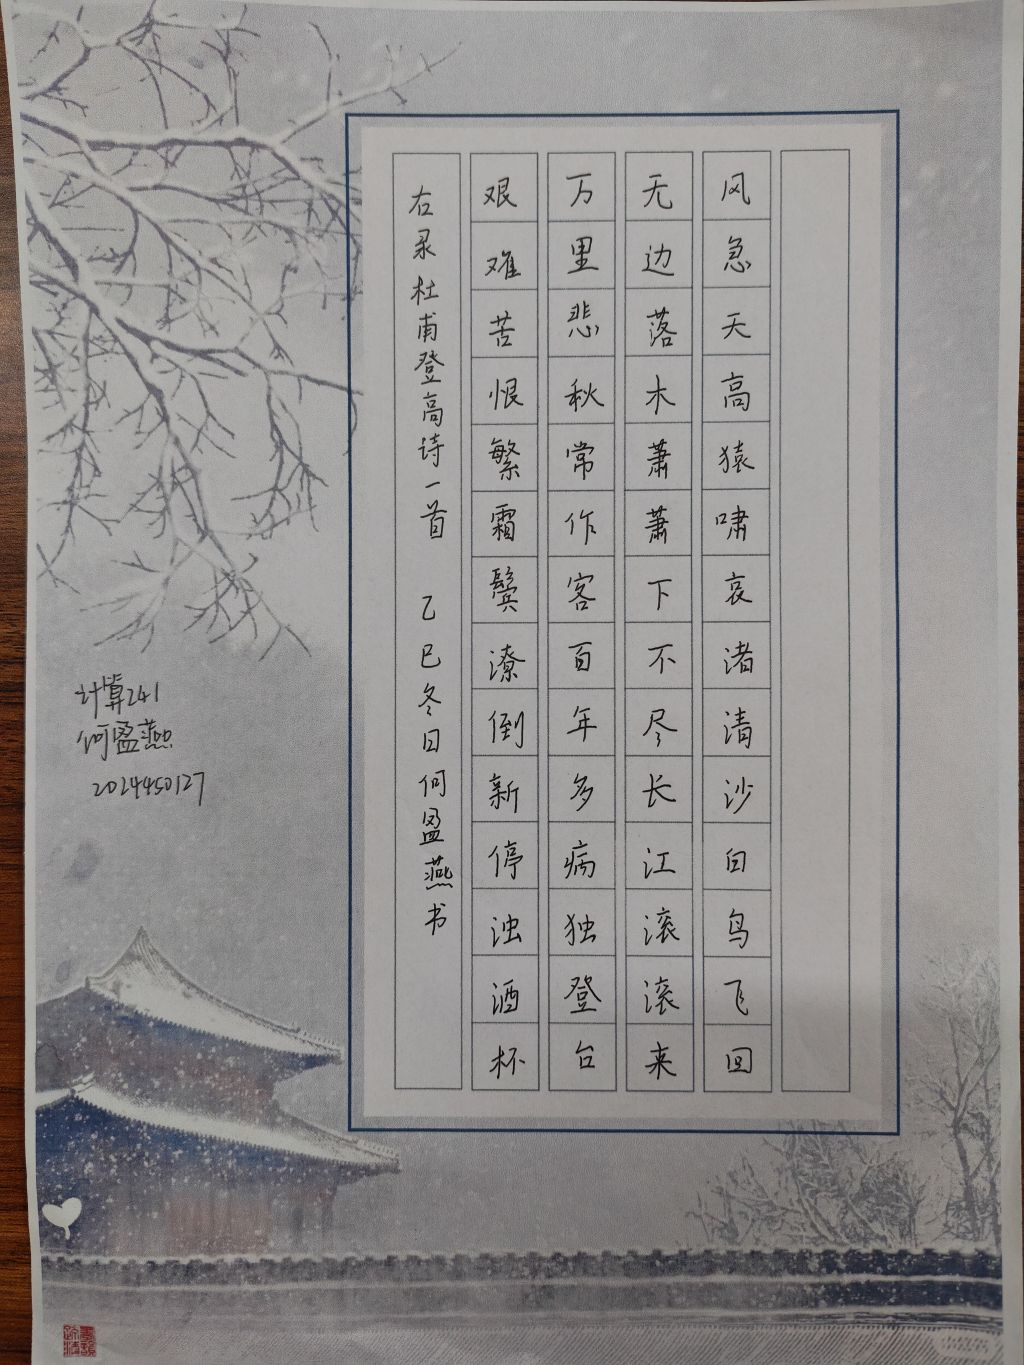 风急天高猿啸哀渚清沙白鸟飞回
无边落木萧萧下不尽长江滚滚来
万里悲秋常作客百年多病独登台
艰难苦恨繁霜鬓潦倒新停浊酒杯
右录杜甫登高诗一首 乙巳冬日何盈燕书
计算241
何盈燕
2024450127